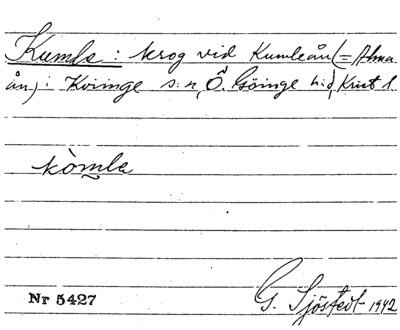 Kumla: krog vid Kumleån (= Alma
ån) i Kviinge s:n, Ö. Göinge hd, Krist l.
kòmla
Nr 5427
G. Sjöstedt 1942